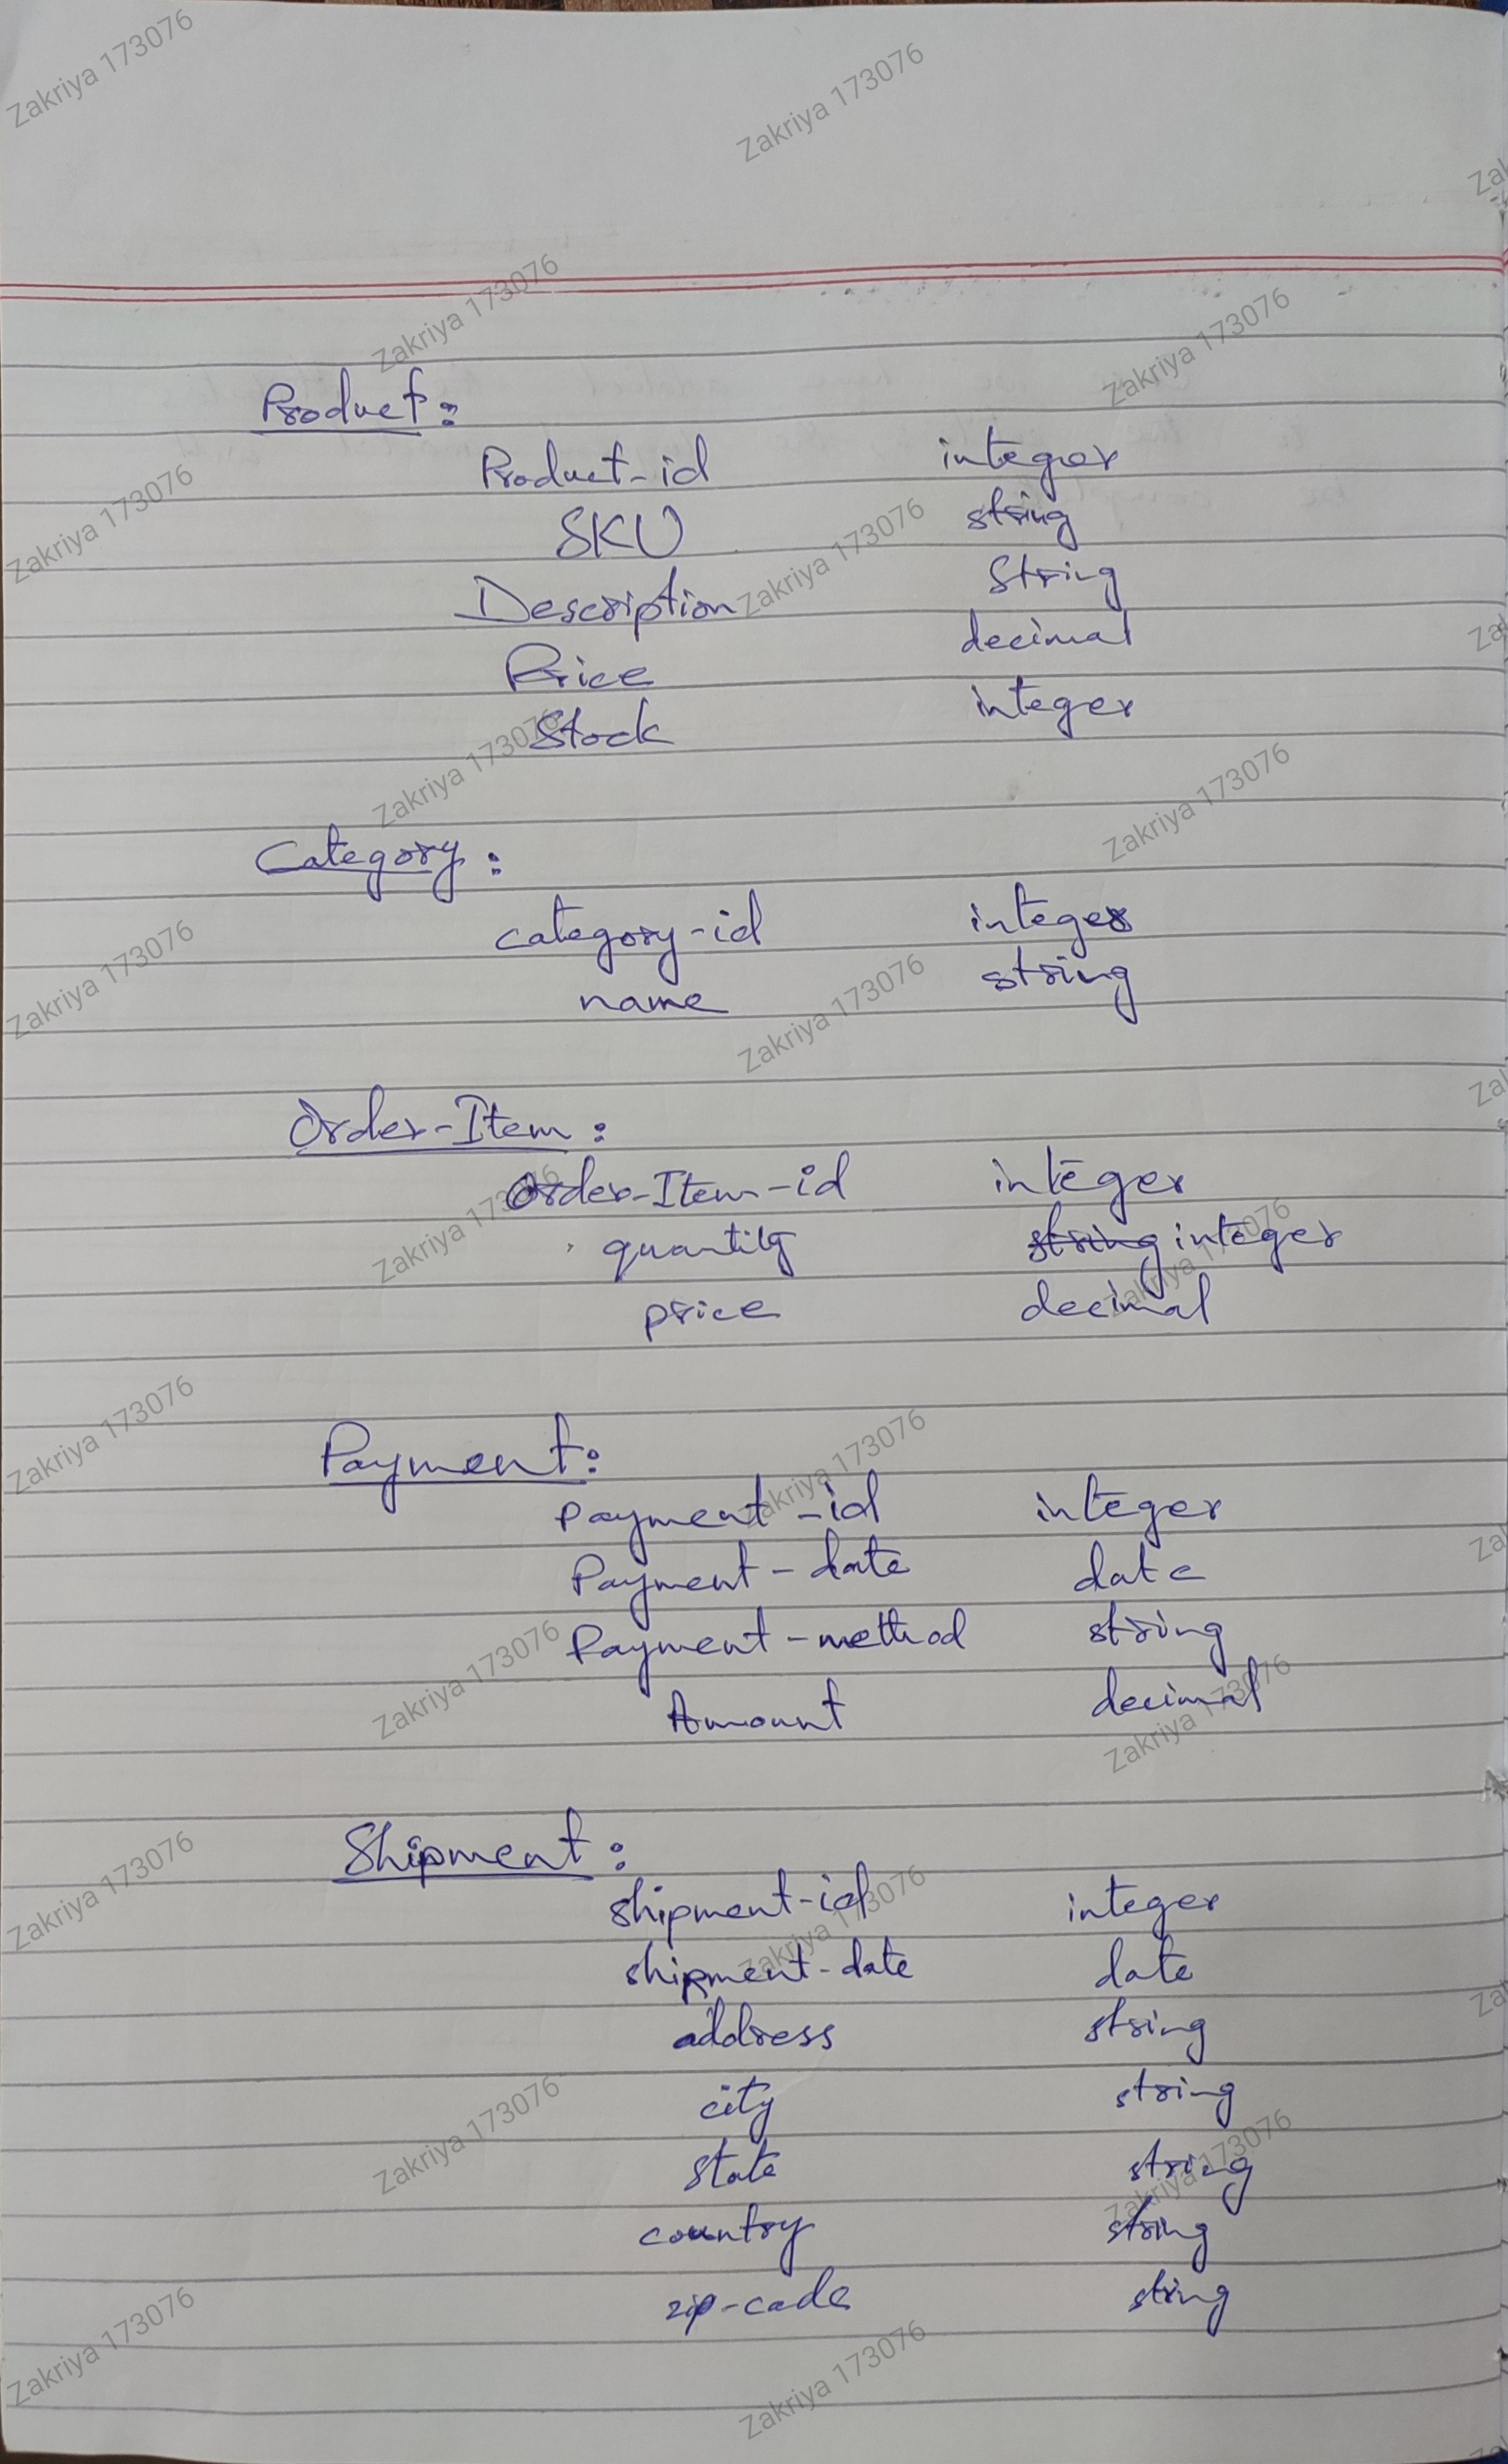 Product:
Product-id integer
SKU string
Description String
Price decimal
Stock integer
Category:
category-id integer
name string
Order-Item:
Order-Item-id integer
quantity string integer
price decimal
Payment:
Payment-id integer
Payment-date date
Payment-method string
Amount decimal
Shipment:
shipment-id integer
shipment-date date
address string
city string
state string
country string
zip-code string
Zakriya 173076